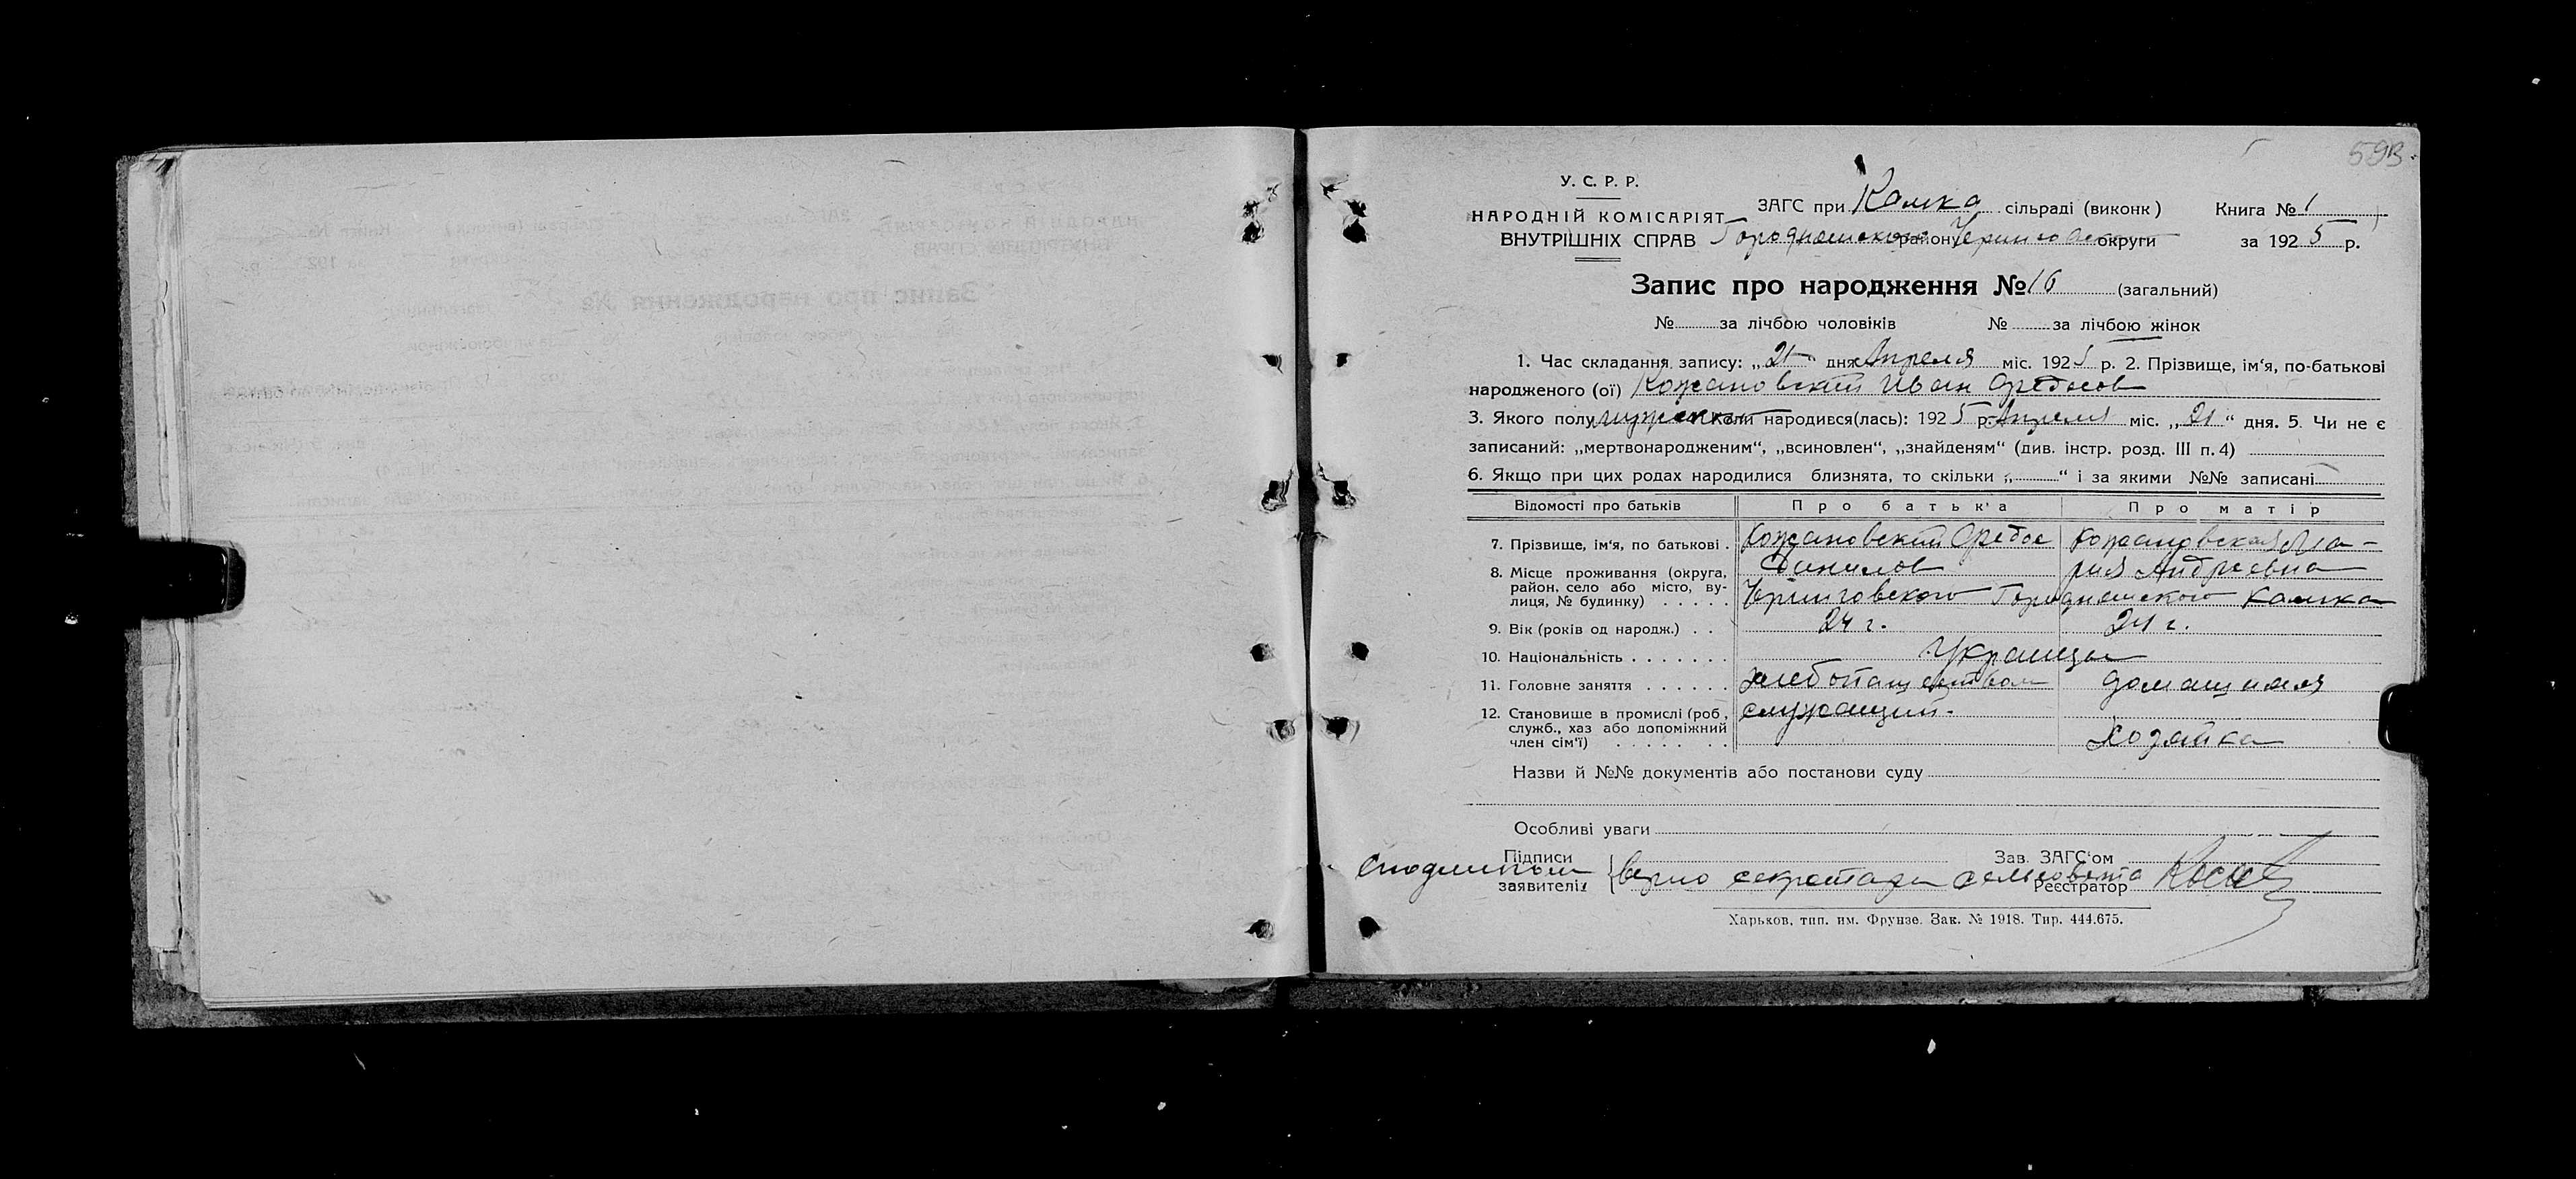 593.
У. С. Р. Р.
НАРОДНІЙ КОМІСАРІЯТ
ВНУТРІШНІХ СПРАВ
ЗАГС при Камка сільраді (виконк)
Городнянского району Черниговской округи
Книга № 1
за 1925 р.
Запис про народження № 16 (загальний)
№ за лічбою чоловіків № за лічбою жінок
1. Час складання запису: „21“ дня Апреля міс. 1925 р. 2. Прізвище, ім‘я, по-батькові
народженого (ої) Кожановский Иван Федосов
3. Якого полу мужского коли народився(лась): 1925 р. Апреля міс. „21“ дня. 5. Чи не є
записаний: „мертвонародженим“, „всиновлен“, „знайденям“ (див. інстр. розд. III п. 4)
6. Якщо при цих родах народилися близнята, то скільки „ “ і за якими №№ записані
Відомості про батьків Про батьк‘а Про матір
7. Прізвище, ім‘я, по батькові . Кожановский Федос Кожановская Ма-
Данилов рия Андреевна
8. Місце проживання (округа,
район, село або місто, ву-
лиця, № будинку) . . . . . Черниговского Городнянского Камка
9. Вік (років од народж.) . . 24 г. 24 г.
10. Національність . . . . . . . Украинцы
11. Головне заняття . . . . . . хлебопашеством домашняя
12. Становище в промислі (роб,
служб., хаз або допоміжний
член сім‘ї) . . . . . . . служащий. хозяйка
Назви й №№ документів або постанови суду
Особливі уваги
Підписи
заявителів
Зав. ЗАГС‘ом
Реєстратор
С подлинным верно секретарь сельсовета
Харьков, тип. им. Фрунзе. Зак. № 1918. Тир. 444.675.